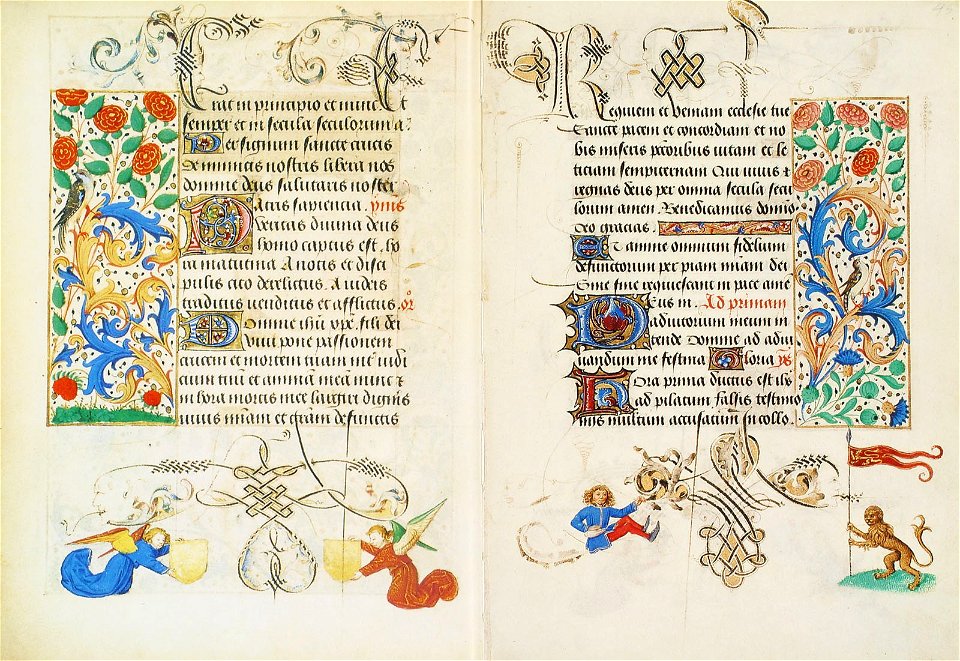 Erat in principio et nunc Et
semper et in secula seculorum a.
Per signum sancte crucis
de inimicis nostris libera nos
domine deus salutaris noster
Patris sapiencia. ymis
veritas divina deus
homo captus est. ho
ra matutina A notis et disci
pulis cito derelictus. A iudeis
traditus venditus et afflictus. or
Domine ihu xpe. fili dei
vivi pone passionem
crucem et mortem tuam inter iudi
cium tuum et animam meam nunc et
in hora mortis mee largiri digneris
vivis miam et gram defunctis
Requiem et veniam ecclesie tue
Sancte pacem et concordiam et no
bis miseris peccatoribus vitam et le
ticiam sempiternam Qui vivis et
regnas deus per omnia secula secu
lorum amen. Benedicamus domino
deo gracias.
Et anime omnium fidelium
defunctorum per piam miam dei
Sine fine requiescant in pace ame
Deus in. Ad primam
adiutorium meum in
tende Domine ad adiu
vandum me festina Gloria ys
Hora prima ductus est ihs
ad pilatum falsis testimo
niis multum accusatum In collo.